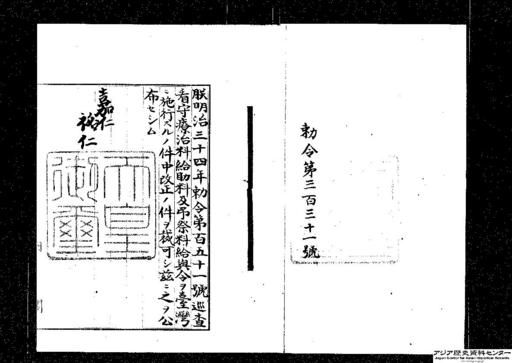 勅令第三百三十一號
朕明治三十四年勅令第百五十一號巡査
看守療治料給助料及弔祭料給與令ヲ臺灣
ニ施行スルノ件中改正ノ件ヲ裁可シ茲ニ之ヲ公
布セシム
嘉仁
裕仁
天皇
御璽
アジア歴史資料センター
Japan Center for Asian Historical Records